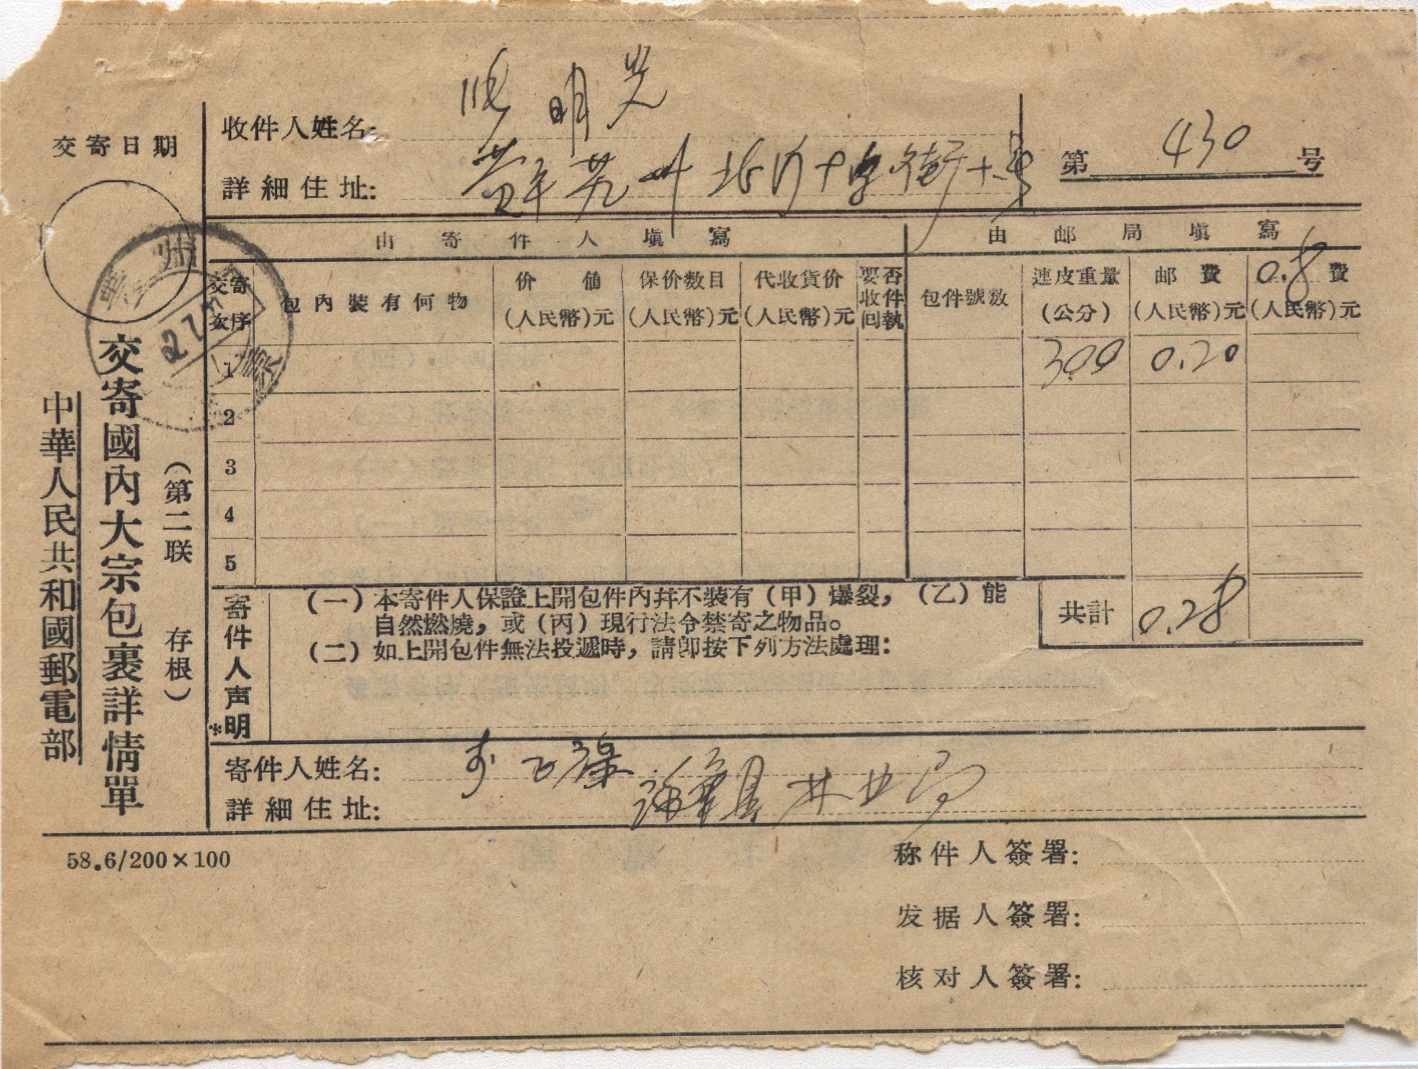 交寄日期
中華人民共和國郵電部
交寄國內大宗包裹詳情單
（第二联 存根）
收件人姓名： 明光
詳細住址： 北 十字街十 号
第 430 号
由寄件人填寫
由邮局填寫
交寄次序
包內裝有何物
价值（人民幣）元
保价数目（人民幣）元
代收貨价（人民幣）元
要否收件回執
包件號数
連皮重量（公分）
邮費（人民幣）元
0.8 費（人民幣）元
1 300 0.20
2
3
4
5
共計 0.28
寄件人声明
*
（一）本寄件人保證上開包件內幷不裝有（甲）爆裂，（乙）能
自然燃燒，或（丙）現行法令禁寄之物品。
（二）如上開包件無法投遞時，請卽按下列方法處理：
寄件人姓名：
詳細住址： 县林业局
58.6/200×100
称件人簽署：
发据人簽署：
核对人簽署：